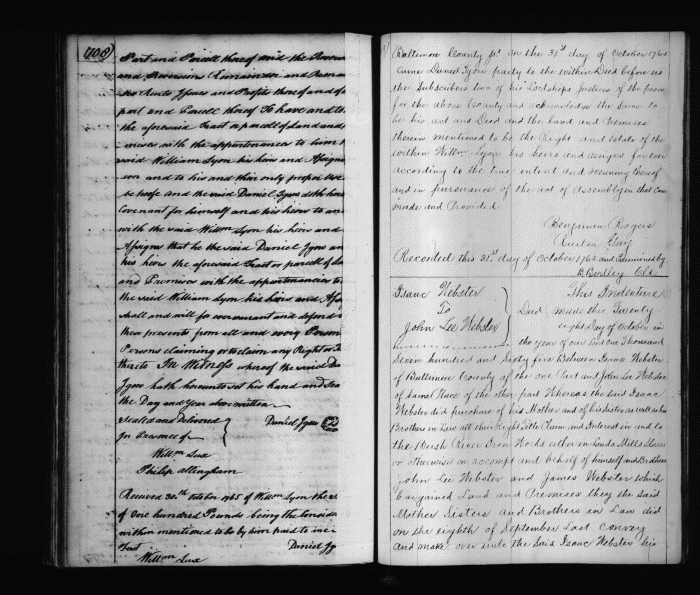 408
Part and Parcell thereof and the Rever
and Reversion Remainder and Remai
Rents Issues and Profits thereof and of
part and Parcell thereof To have and to
the aforesaid Tract or parcell of Land and
with the appurtenances to him
said William Lyon his heirs and Assigns
and to his and their only proper use
be hoofe and the said Daniel Igou doth here
Covenant for himself and his heirs to an
with the said Willm Lyon his heirs and
Assigns that he the said Daniel Igou an
his heirs the aforesaid Tract or parcell of La
and Premises with the appurtenances to
the said William Lyon his heirs and Ass
shall and will for ever warrant and defend
these presents from all and every Person
Persons claiming or to claim any Right or
thereto In Witness whereof the said Da
Igou hath hereunto set his hand and sea
the Day and Year above written
Sealed and Delivered
In Presence of
Daniel Igou
Willm Lux
Philip Allingham
Received 30th October 1765 of Willm Lyon the
of One hundred Pounds being the Conside
within mentioned to be by him paid to me
Test
Daniel Ig
Willm Lux
Baltimore County ss on the 31st day of October 1765
came Daniel Igou party to the within Deed before us
the Subscribers two of his Lordships Justices of the peace
for the above County and acknowledge the same to
be his act and Deed and the Land and Premises
therein mentioned to be the Right and Estate of the
within Willm Lyon his heirs and assigns for ever
according to the true intent and meaning thereof
and in pursuance of the act of Assembly in that Case
made and Provided
Benjamin Rogers
Recorded this 31st day of October 1765 and Examined by
B Bordley Clk
Isaac Webster
To
John Lee Webster
Deed
This Indenture
made this Twenty
eight Day of October in
the year of our Lord One Thousand
Seven hundred and Sixty five Between Isaac Webster
of Baltimore County of the one Part and John Lee Webster
of Same Place of the other part Whereas the Said Isaac
Webster did purchase of his Mother and of his Sister as well as his
Brothers in Law all their Right Title Claim and Interest in and to
the Bush River Iron Works either in Lands Mills Slaves
or otherwise on accompt and behalf of himself and Brothers
John Lee Webster and James Webster which
bargained Land and Premises they the said
Mother Sisters and Brothers in Law did
on the eighth of September Last Convey
and make over unto the Said Isaac Webster his